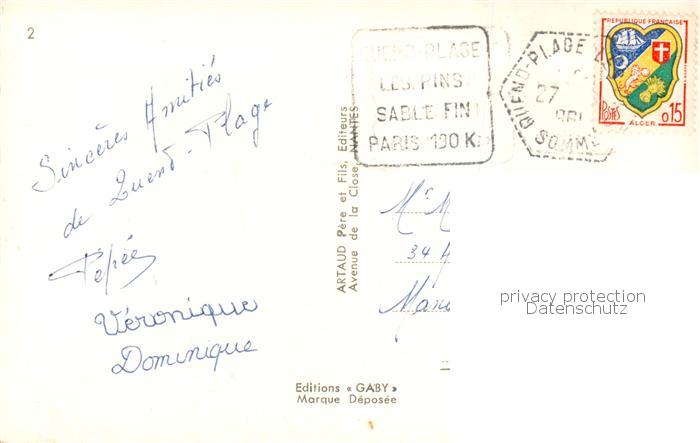 2
Sincères Amitiés
de Quend-Plage
Pépée
Véronique
Dominique
ARTAUD Père et Fils, Editeurs
Avenue de la Close, NANTES
QUEND-PLAGE
LES PINS
SABLE FIN
PARIS 190 K
QUEND-PLAGE
27
SOMME
REPUBLIQUE FRANÇAISE
POSTES
0,15
ALGER
34
privacy protection
Datenschutz
Editions « GABY »
Marque Déposée